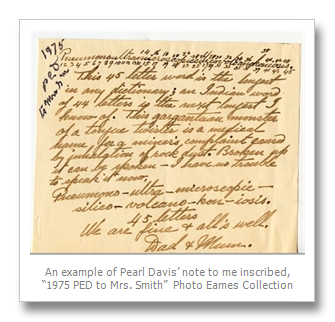 1975
PED
to Mrs. Sm
Pneumonoultramicroscopicsilicovolcanokoniosis.
This 45 letter word is the longest
in any dictionary; an Indian word
of 44 letters is the next longest I
know of. This gargantuan monster
of a tongue twister is a medical
name for a miner's complaint caused
by inhalation of rock dust. Broken up
it can be spoken – I have no trouble
to speak it now.
Pneumono – ultra – microscopic –
silico – volcano – kon – iosis.
45 letters
We are fine & all is well.
Dad & Mum.
An example of Pearl Davis' note to me inscribed,
"1975 PED to Mrs. Smith" Photo Eames Collection